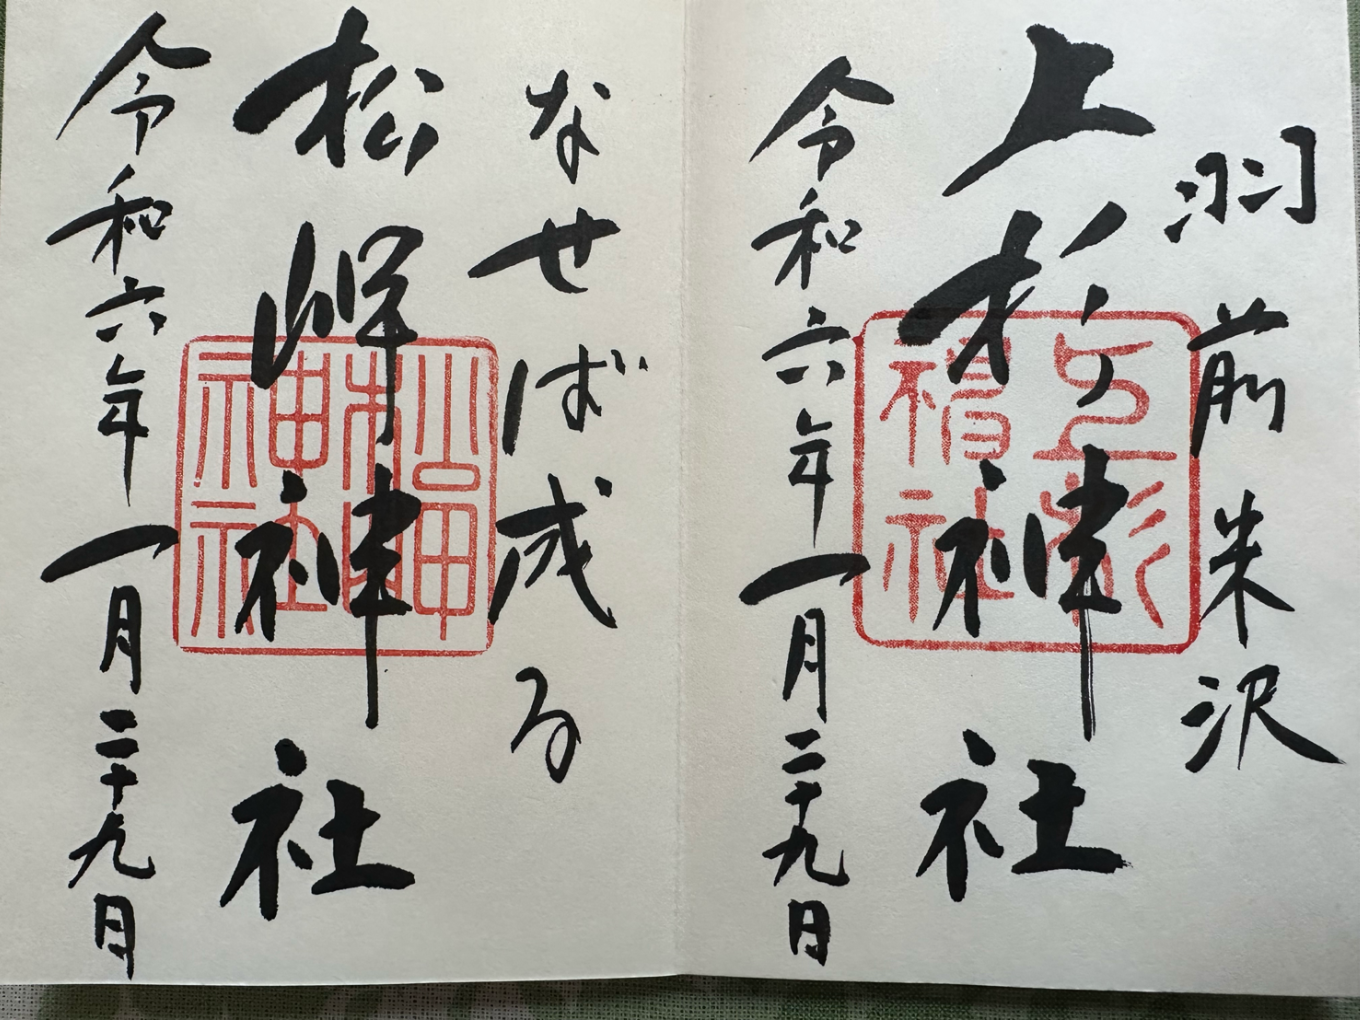 羽前米沢
上杉神社
上杉神社
令和六年一月二十九日
なせば成る
松岬神社
松岬神社
令和六年一月二十九日